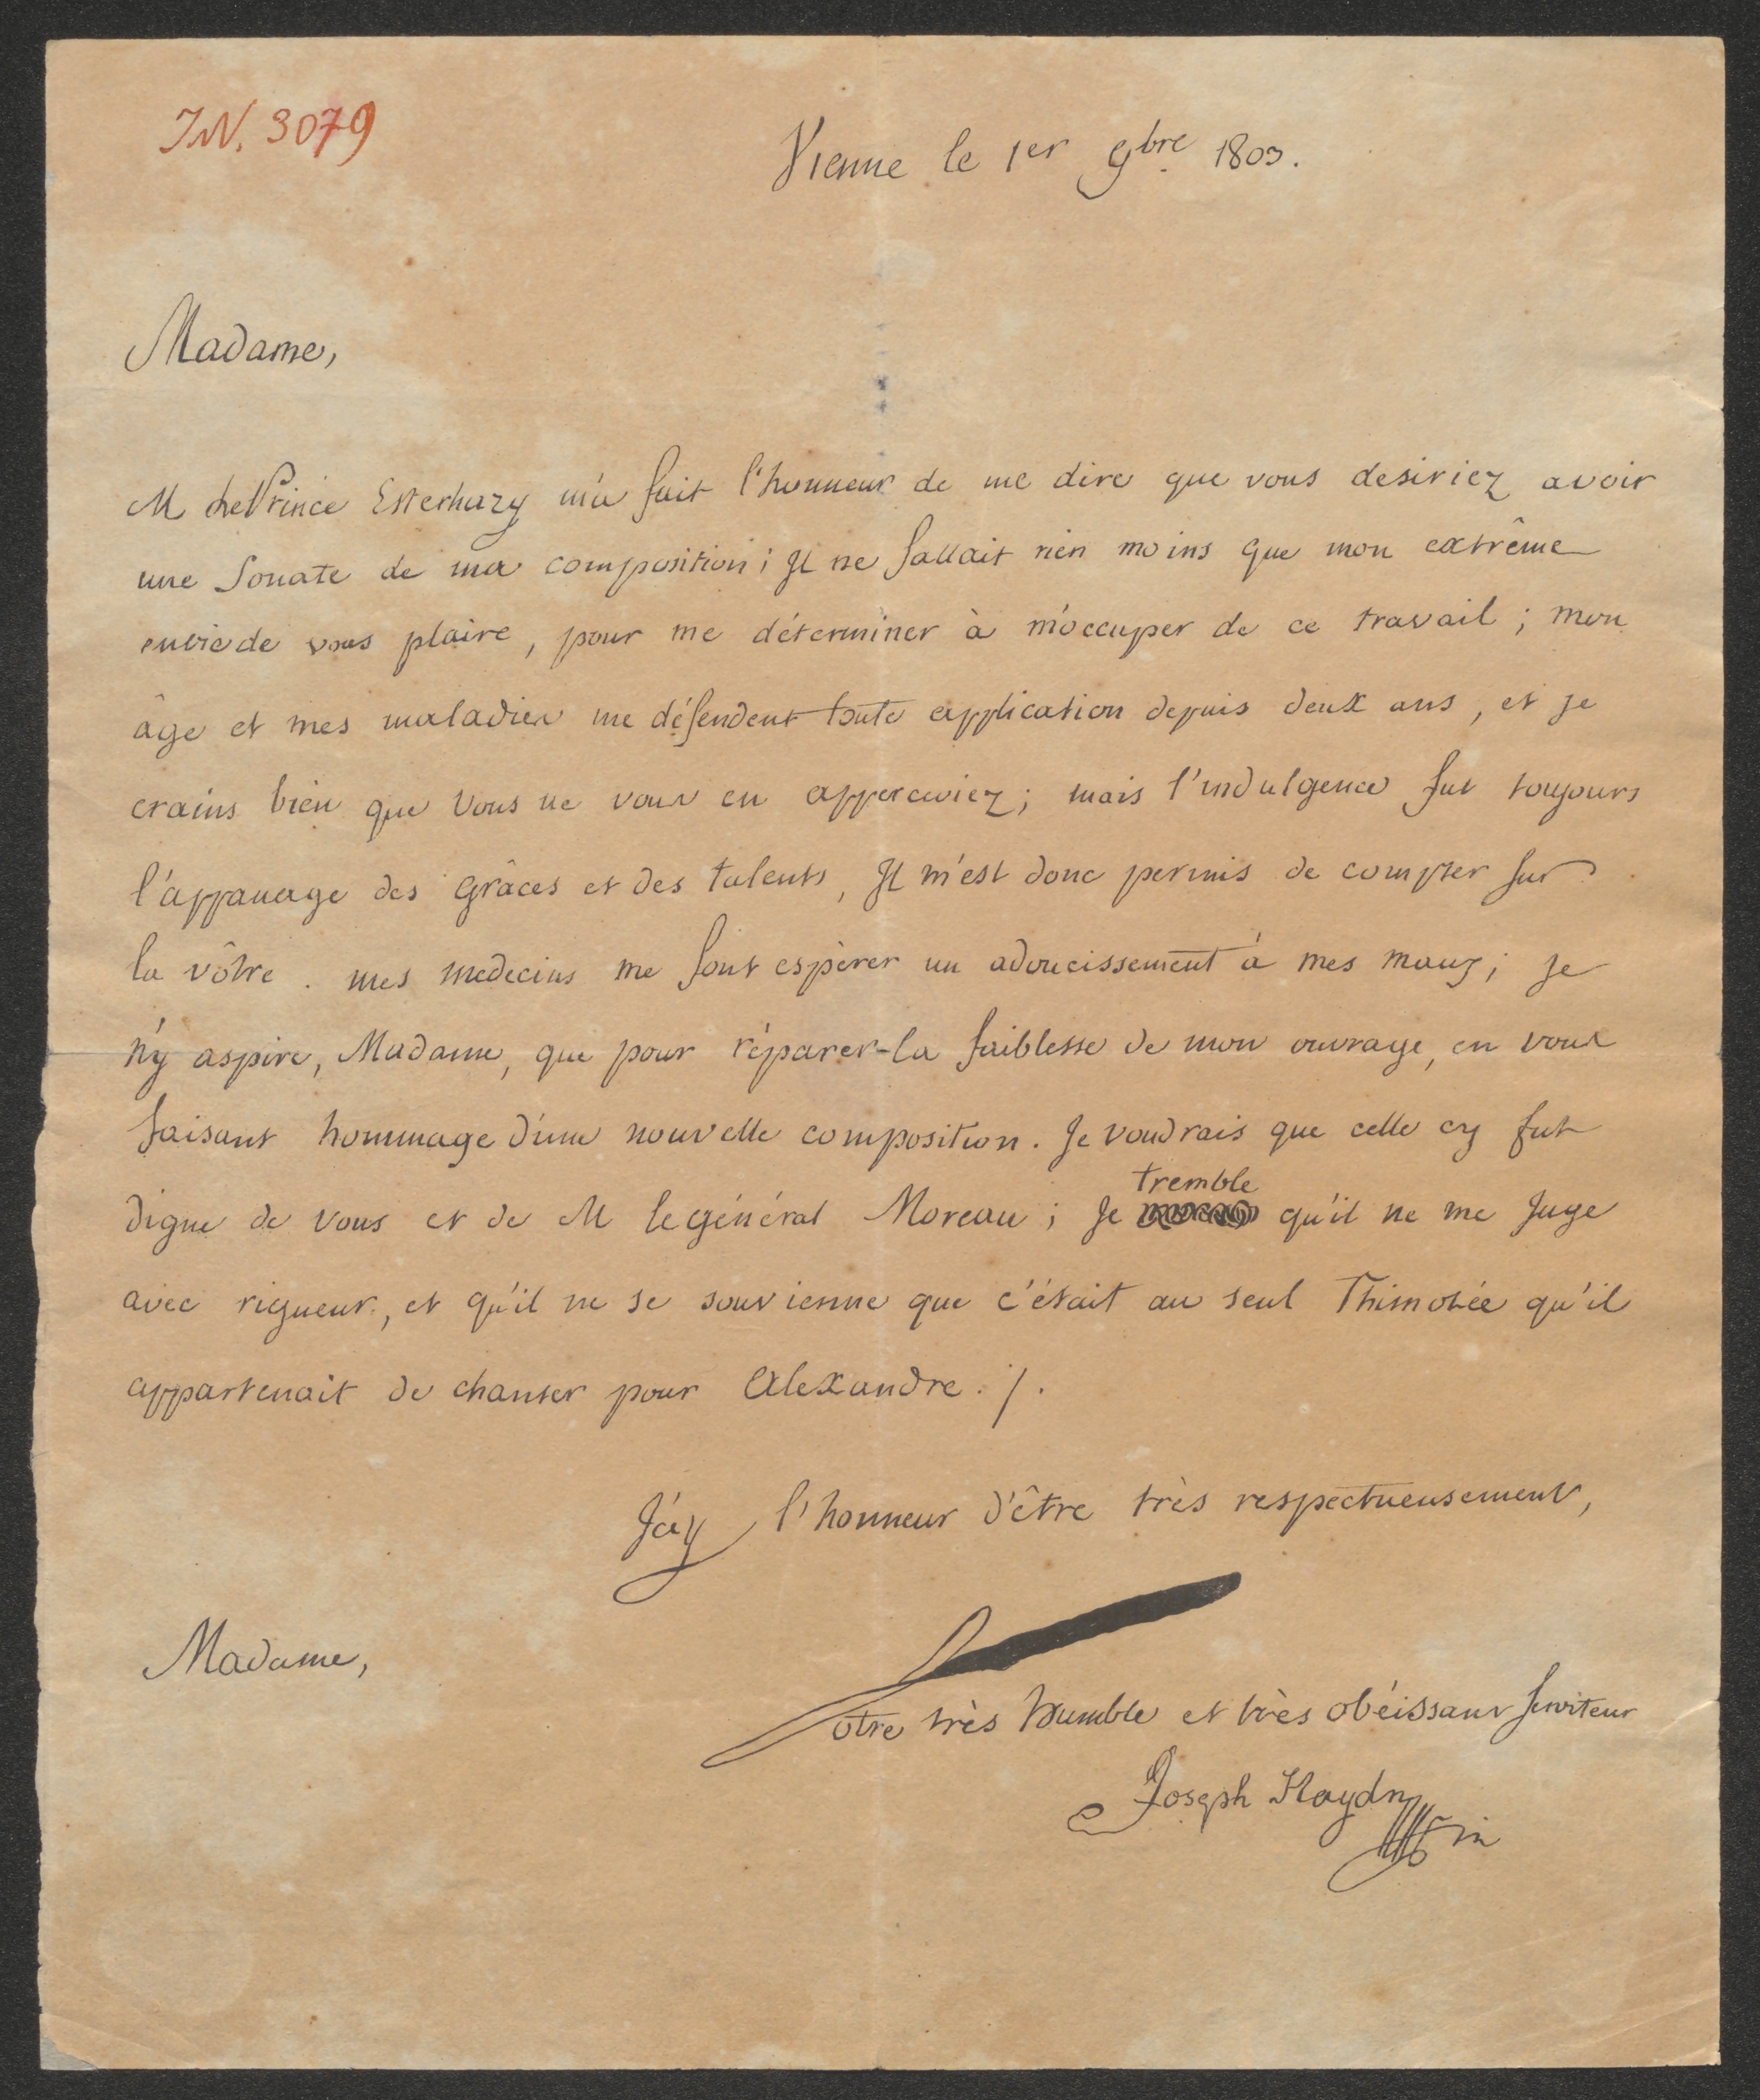 IN. 3079
Vienne le 1er 9bre 1803.
Madame,
M Le Prince Esterhazy m'a fait l'honneur de me dire que vous desiriez avoir
une Sonate de ma composition; Il ne fallait rien moins que mon extrême
envie de vous plaire, pour me déterminer à m'occuper de ce travail; mon
âge et mes maladies me défendent toute application depuis deux ans, et je
crains bien que Vous ne vous en apperceviez; mais l'indulgence fut toujours
l'appanage des Grâces et des talents, Il m'est donc permis de compter sur
la vôtre. mes medecins me font espèrer un adoucissement à mes maux; je
n'y aspire, Madame, que pour réparer la faiblesse de mon ouvrage, en vous
faisant hommage d'une nouvelle composition. Je voudrais que celle cy fut
tremble
digne de vous et de M le général Moreau; Je qu'il ne me Juge
avec rigueur, et qu'il ne se souvienne que c'était au seul Thimotée qu'il
appartenait de chanter pour Alexandre ./.
J'ay l'honneur d'être très respectueusement,
Madame,
Votre très humble et très obéissant serviteur
Joseph Haydn